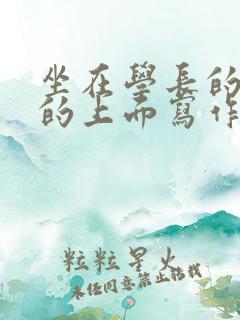 坐在學長的
的上面寫作
粒粒星火
未经同意禁止转载